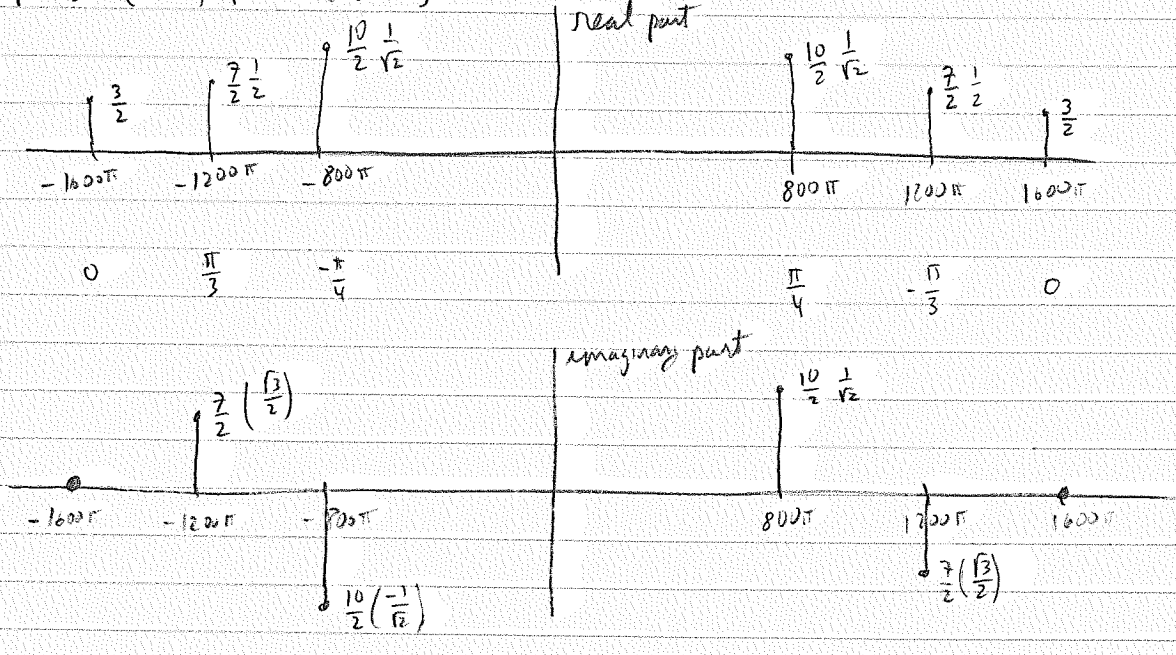 real part
3/2 7/2 1/2 10/2 1/√2 10/2 1/√2 7/2 1/2 3/2
-1600π -1200π -800π 800π 1200π 1600π
0 π/3 -π/4 π/4 -π/3 0
imaginary part
7/2 (√3/2) 10/2 1/√2
-1600π -1200π -800π 800π 1200π 1600π
10/2 (-1/√2) 7/2 (√3/2)